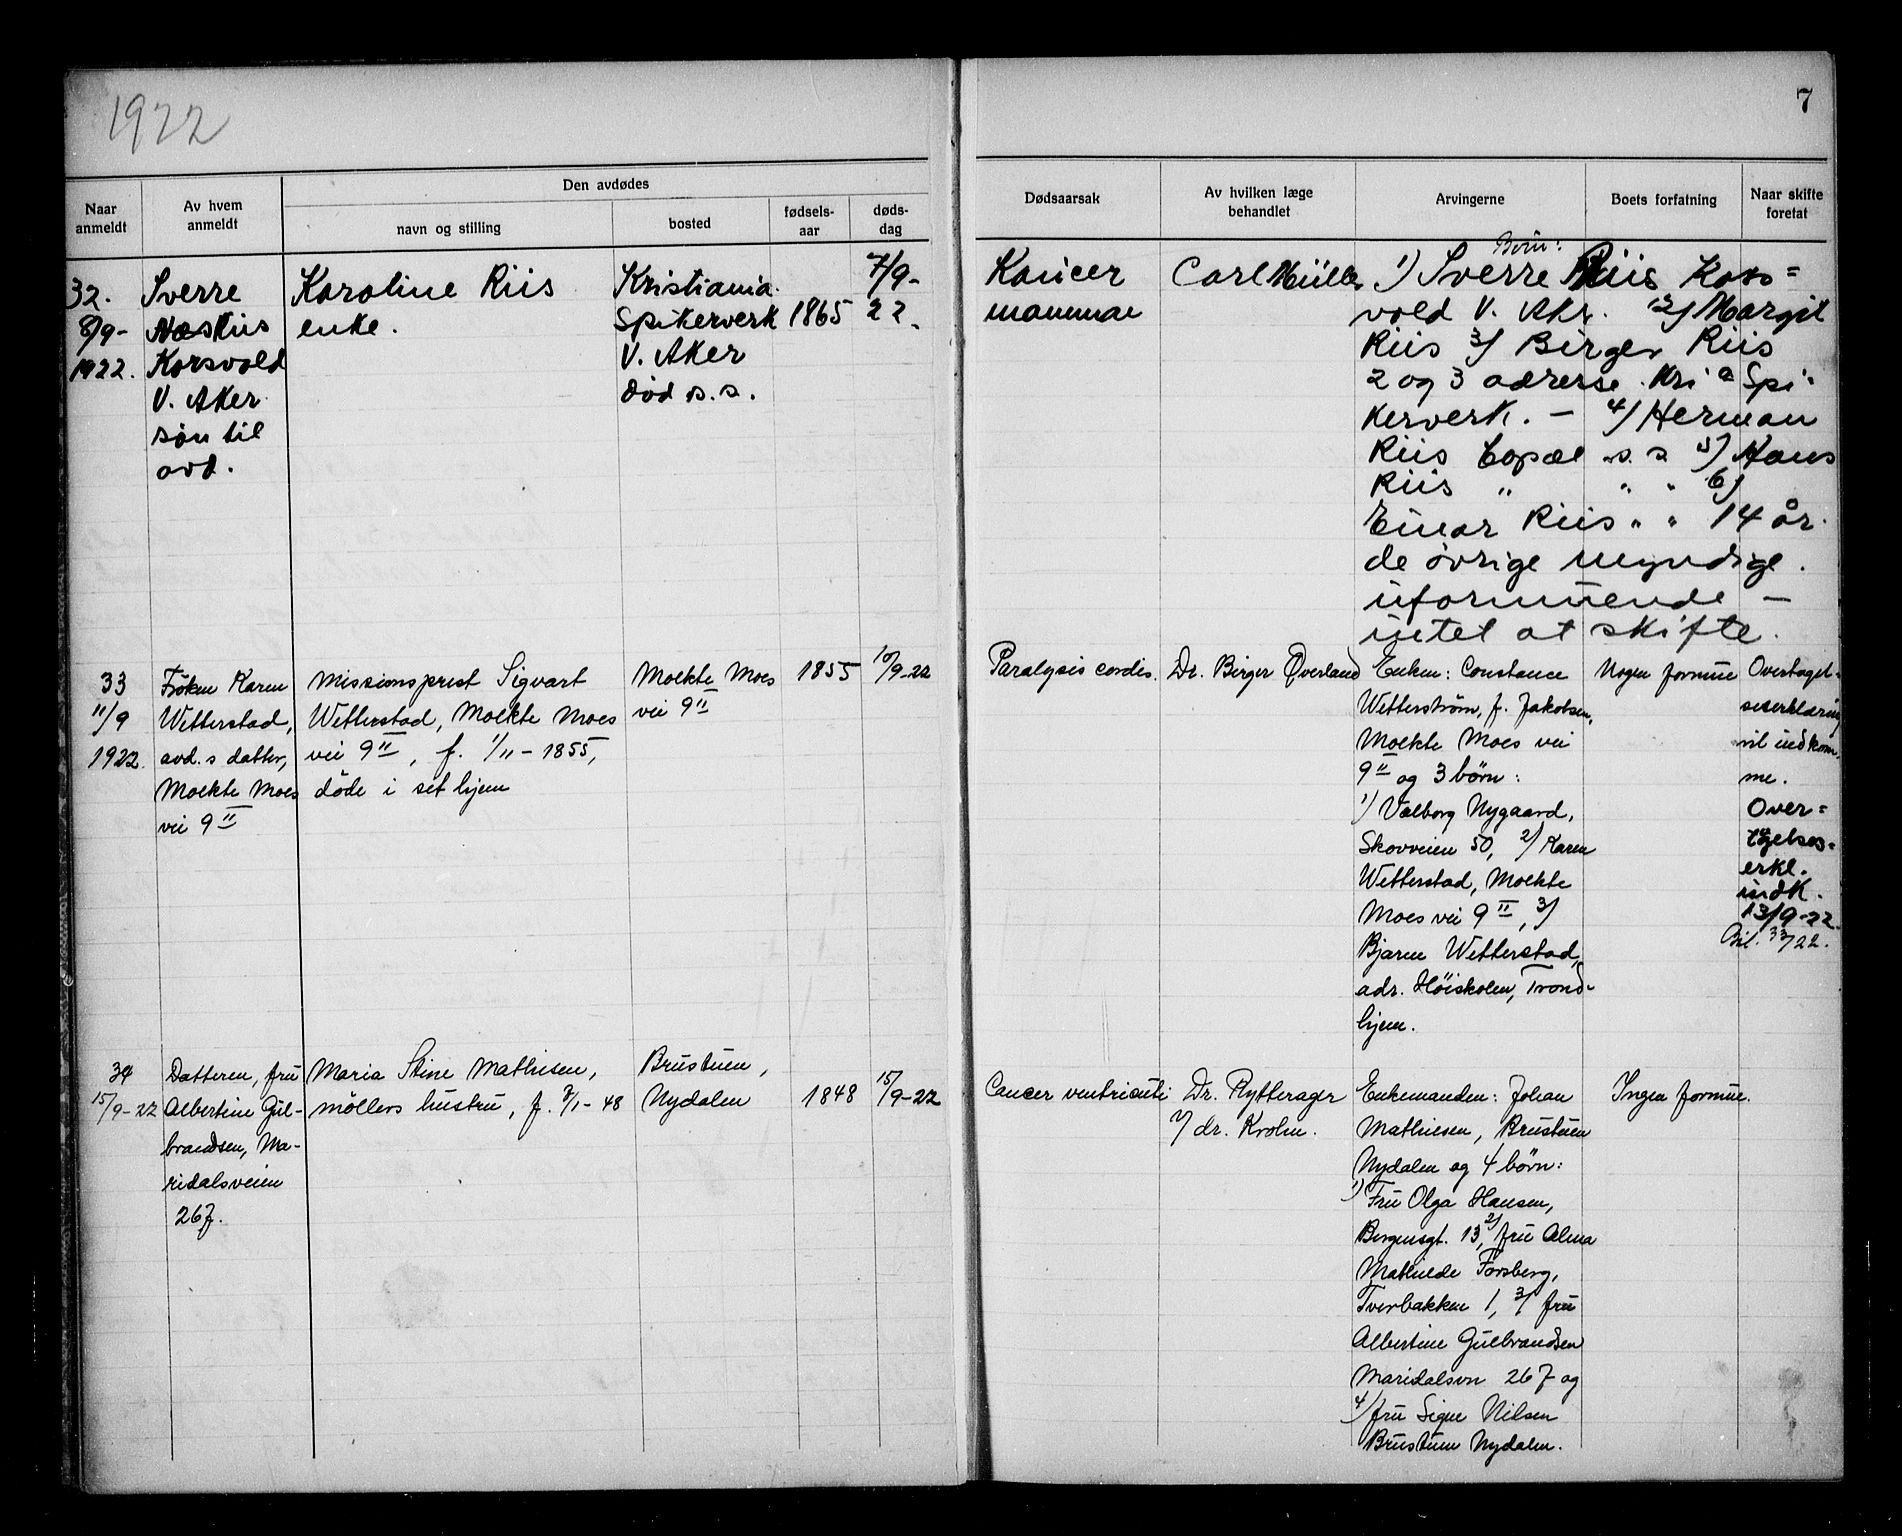 1922
7
Naar anmeldt
Av hvem anmeldt
Den avdødes
navn og stilling
bosted
fødsels-aar
døds-dag
Dødsaarsak
Av hvilken læge behandlet
Arvingerne
Boets forfatning
Naar skifte foretat
32.
8/9-
1922.
Sverre
Riis
Korsvold
V. Aker
søn til
avd.
Karoline Riis
enke.
Kristiania
Spikerverk
V. Aker
død s.s.
1865
7/9-
22.
Kancer
mammae
Carl Müller
Børn:
1) Sverre Riis Kors=
vold V. Akr. 2) Margit
Riis 3) Birger Riis
2 og 3 adresse Kri a Spi-
kerverk. - 4) Herman
Riis s. s. 5) Hans
Riis " " " 6)
Einar Riis " " 14 år.
de øvrige myndige.
uformuende -
intet at skifte.
33
11/9
1922.
Frøken Karen
Wetterstad,
avd.s datter,
Moltke Moes
vei 9 II
Missionsprest Sigvart
Wetterstad, Moltke Moes
vei 9 II, f. 1/11-1855,
døde i set hjem
Moltke Moes
vei 9 II
1855
10/9-22
Paralysis cordis.
Dr. Birger Øverland
Enken: Constance
Wetterstrøm, f. Jakobsen,
Moltke Moes vei
9 II og 3 børn:
1) Valborg Nygaard,
Skovveien 50, 2) Karen
Wetterstad, Moltke
Moes vei 9 II, 3)
Bjarne Wetterstad,
adr. Høiskolen, Trond-
hjem.
Nogen formue
Overtagel-
seserklæring
vil indkom-
me.
Over=
tagelses-
erkl.
indk.
13/9-22.
Bil. 33/22.
34
15/9-22
Datteren, fru
Albertine Gul-
brandsen, Ma-
ridalsveien
267.
Maria Stine Mathisen,
møllers hustru, f. 3/1-48
Brustuen,
Nydalen
1848
15/9-22
Cancer ventriculi
Dr. Rytterager
2) dr. Krohn.
Enkemanden: Johan
Mathiesen, Brustuen
Nydalen og 4 børn:
1) Fru Olga Hansen,
Bergensgt. 13, 2) fru Alma
Mathilde Forsberg,
Tverbakken 1, 3) fru
Albertine Gulbrandsen
Maridalsvn 267 og
4) fru Signe Nilsen
Brustuen Nydalen.
Ingen formue.